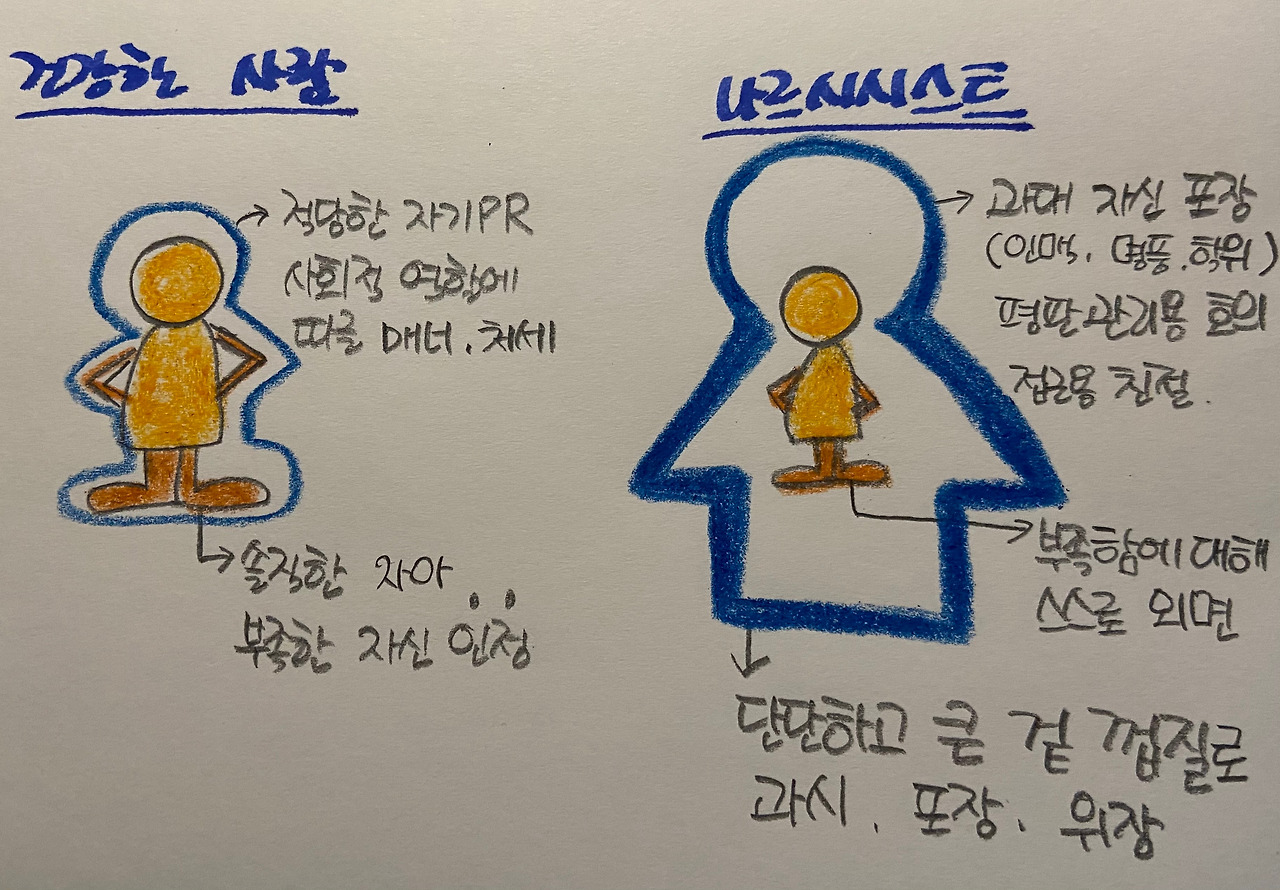 건강한 사람
적당한 자기PR
사회적 역할에
따른 매너, 처세
솔직한 자아
부족한 자신 인정
나르시시스트
과대 자신 포장
(인맥, 명품, 학위)
평판관리용 호의
접근용 친절.
부족함에 대해
스스로 외면
단단하고 큰 겉 껍질로
과시, 포장, 위장